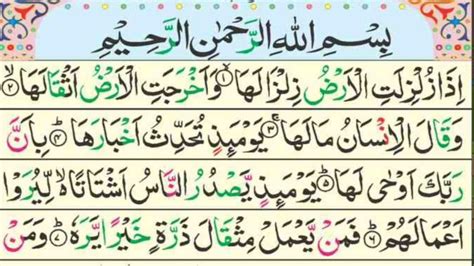 بِسْمِ اللهِ الرَّحْمٰنِ الرَّحِيْمِ
اِذَا زُلْزِلَتِ الْاَرْضُ زِلْزَالَهَا ۙ﴿۱﴾ وَاَخْرَجَتِ الْاَرْضُ اَثْقَالَهَا ۙ﴿۲﴾
وَقَالَ الْاِنْسَانُ مَا لَهَا ۚ﴿۳﴾ يَوْمَئِذٍ تُحَدِّثُ اَخْبَارَهَا ۙ﴿۴﴾ بِاَنَّ
رَبَّكَ اَوْحٰى لَهَا ؕ﴿۵﴾ يَوْمَئِذٍ يَّصْدُرُ النَّاسُ اَشْتَاتًا ۙ۬ لِّيُرَوْا
اَعْمَالَهُمْ ؕ﴿۶﴾ فَمَنْ يَّعْمَلْ مِثْقَالَ ذَرَّةٍ خَيْرًا يَّرَهٗ ؕ﴿۷﴾ وَمَنْ